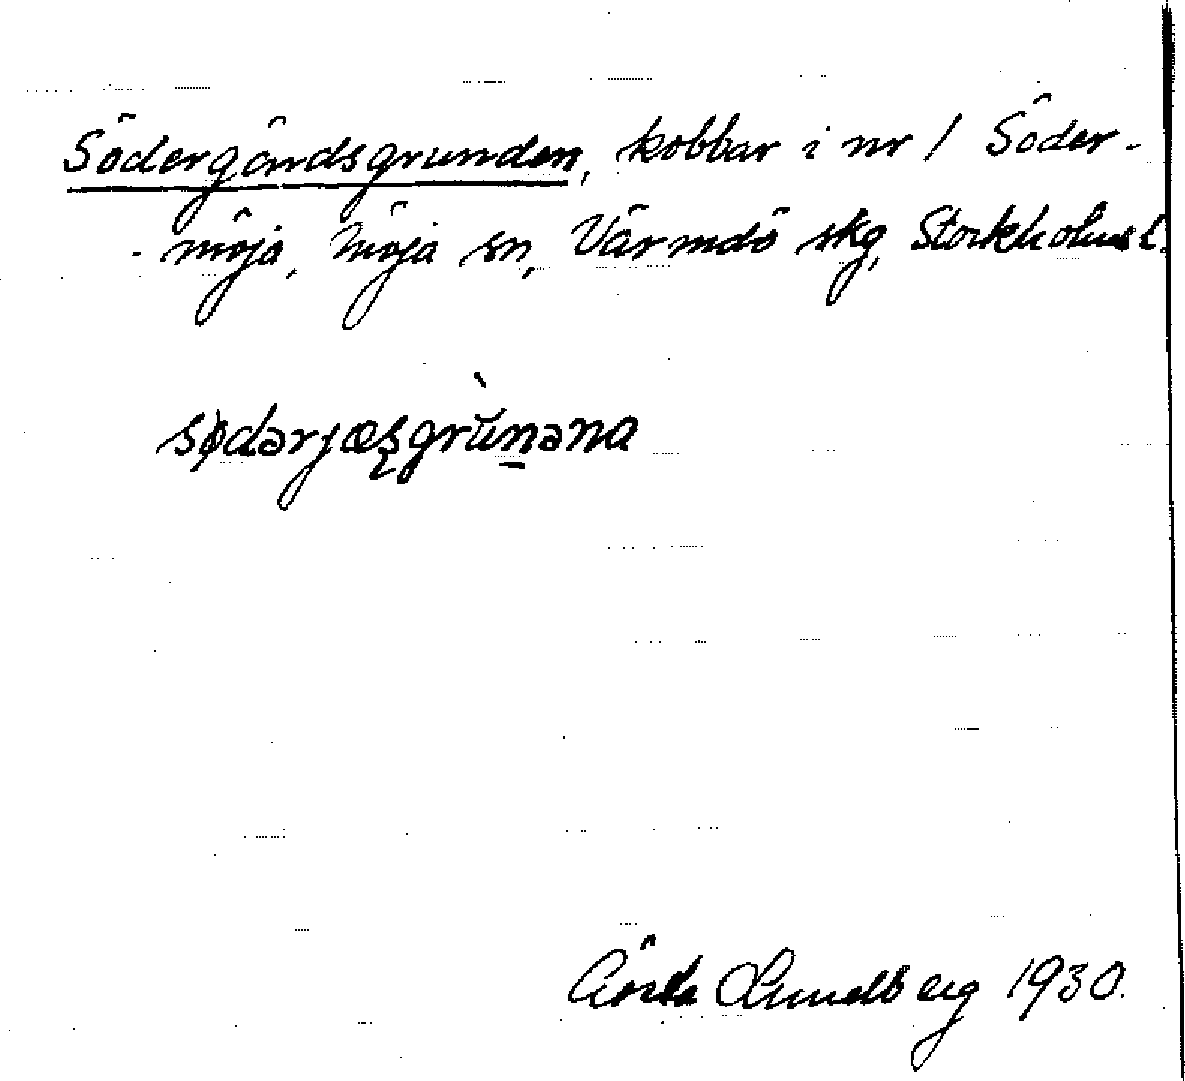 Södergärdsgrunden, kobbar i nr 1 Söder-
-möja, Möja sn, Värmdö skg, Stockholms l.
sødərjæʂgrùnəna
Gösta Lundberg 1930.